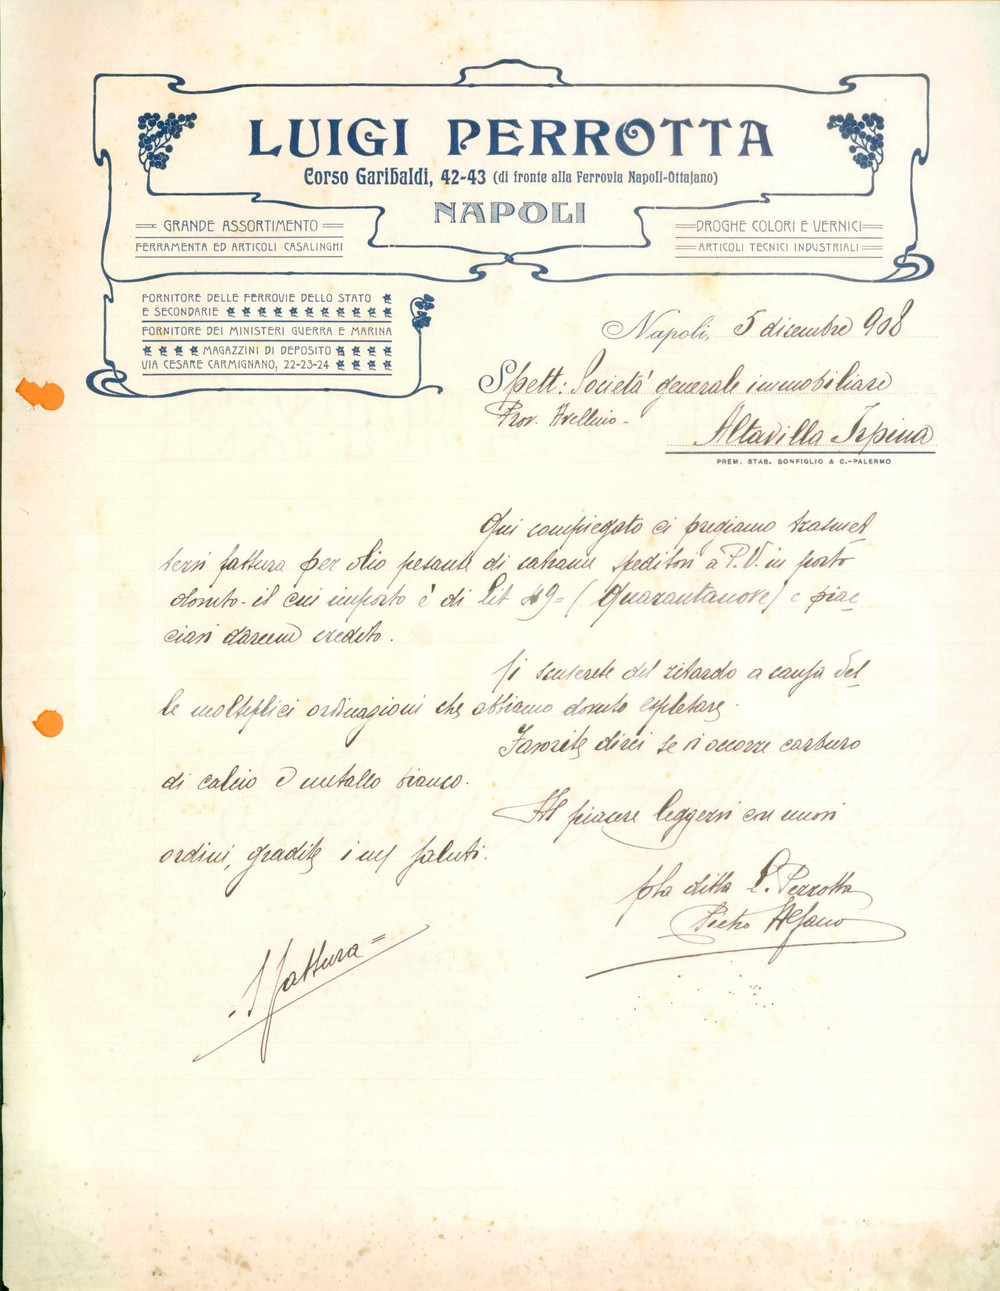 LUIGI PERROTTA
Corso Garibaldi, 42-43 (di fronte alla Ferrovia Napoli-Ottajano)
NAPOLI
GRANDE ASSORTIMENTO
FERRAMENTA ED ARTICOLI CASALINGHI
DROGHE COLORI E VERNICI
ARTICOLI TECNICI INDUSTRIALI
FORNITORE DELLE FERROVIE DELLO STATO
E SECONDARIE
FORNITORE DEI MINISTERI GUERRA E MARINA
MAGAZZINI DI DEPOSITO
VIA CESARE CARMIGNANO, 22-23-24
Napoli, 5 dicembre 908
Spett: Società generale immobiliare
Prov. Avellino -
Altavilla Irpina
PREM. STAB. BONFIGLIO & C.-PALERMO
Qui compiegato ci pregiamo trasmet
tervi fattura per olio pesante di catrame speditovi a P.V. in porto
dovuto - il cui importo è di Lit 49= (Quarantanove) e piac=
ciavi darcene credito.
Ci scuserete del ritardo a causa del=
le molteplici ordinazioni che abbiamo dovuto espletare.
Favorite dirci se vi occorre carburo
di calcio e metallo bianco.
Al piacere leggervi con nuovi
ordini, gradite i saluti.
p la ditta L. Perrotta
Pietro
1 fattura=